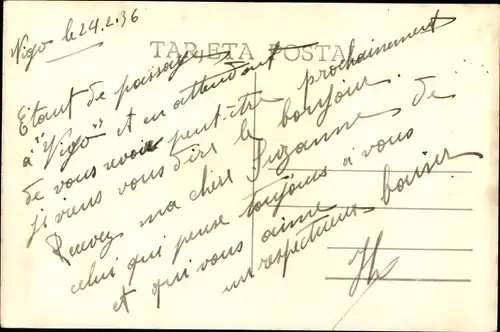 Vigo le 24.2.36
TARJETA POSTAL
Etant de passage
à "Vigo" et en attendant
de vous revoir peut-être prochainement
je viens vous dire le bonjour.
Recevez ma chère Suzanne de
celui qui pense toujours à vous
et qui vous aime
un respectueux baiser